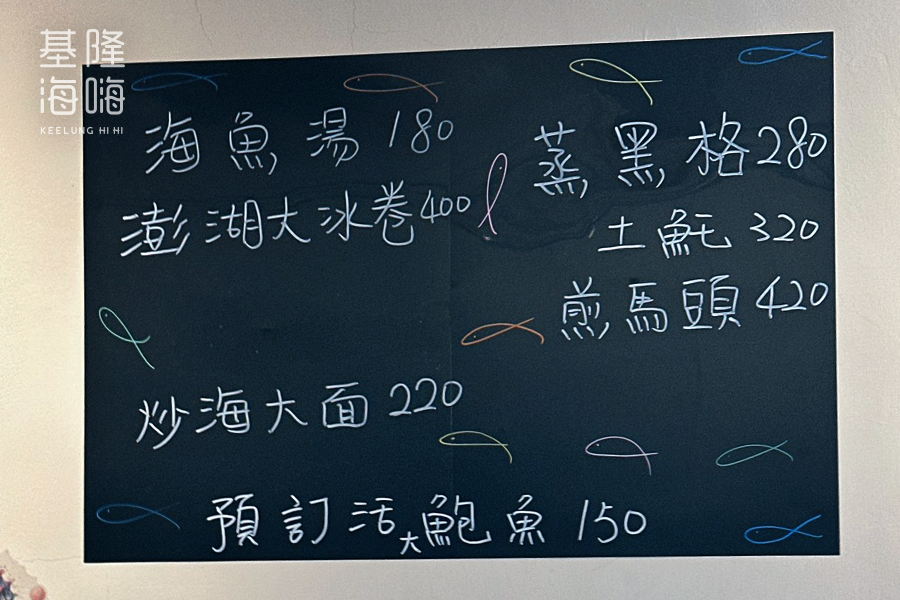 基隆
海嗨
KEELUNG HI HI
海魚湯 180
澎湖大冰卷 400
炒海大面 220
蒸黑格 280
土魠 320
煎馬頭 420
預訂活大鮑魚 150